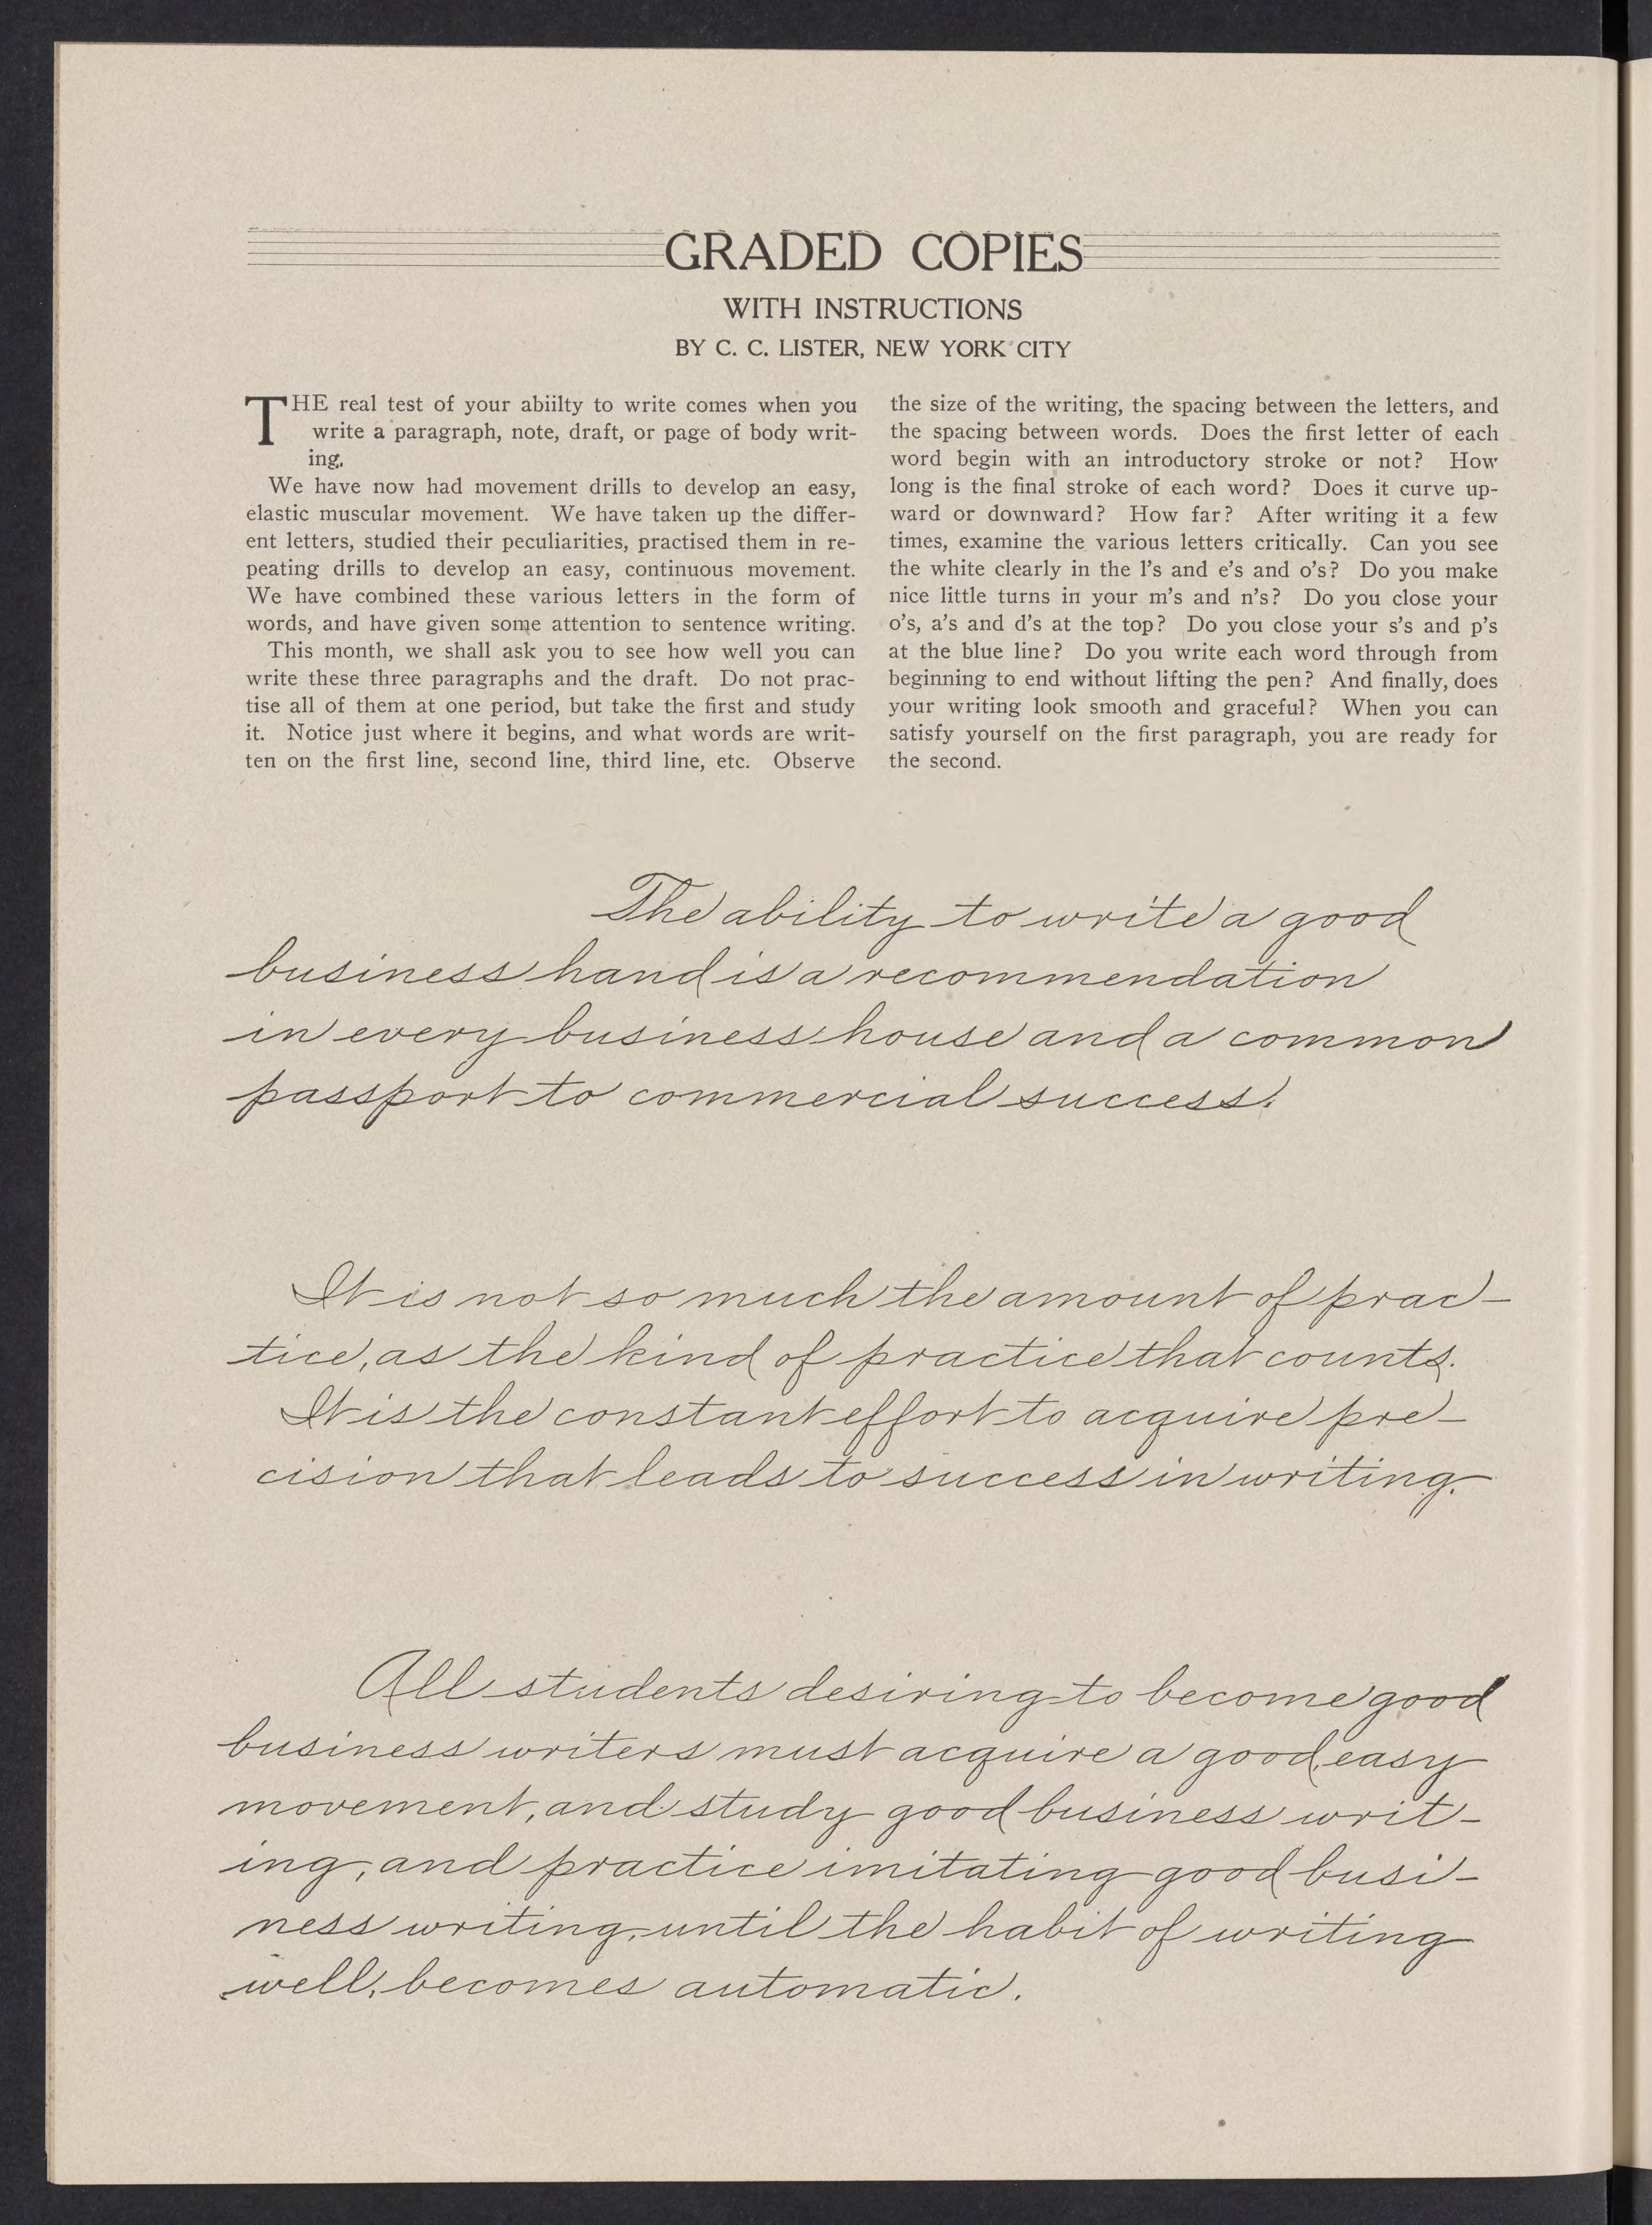 GRADED COPIES
WITH INSTRUCTIONS
BY C. C. LISTER, NEW YORK CITY
THE real test of your abiilty to write comes when you
write a paragraph, note, draft, or page of body writ-
ing.
We have now had movement drills to develop an easy,
elastic muscular movement. We have taken up the differ-
ent letters, studied their peculiarities, practised them in re-
peating drills to develop an easy, continuous movement.
We have combined these various letters in the form of
words, and have given some attention to sentence writing.
This month, we shall ask you to see how well you can
write these three paragraphs and the draft. Do not prac-
tise all of them at one period, but take the first and study
it. Notice just where it begins, and what words are writ-
ten on the first line, second line, third line, etc. Observe
the size of the writing, the spacing between the letters, and
the spacing between words. Does the first letter of each
word begin with an introductory stroke or not? How
long is the final stroke of each word? Does it curve up-
ward or downward? How far? After writing it a few
times, examine the various letters critically. Can you see
the white clearly in the l's and e's and o's? Do you make
nice little turns in your m's and n's? Do you close your
o's, a's and d's at the top? Do you close your s's and p's
at the blue line? Do you write each word through from
beginning to end without lifting the pen? And finally, does
your writing look smooth and graceful? When you can
satisfy yourself on the first paragraph, you are ready for
the second.
The ability to write a good
business hand is a recommendation
in every business house and a common
passport to commercial success.
It is not so much the amount of prac-
tice, as the kind of practice that counts.
It is the constant effort to acquire pre-
cision that leads to success in writing.
All students desiring to become good
business writers must acquire a good, easy
movement, and study good business writ-
ing, and practice imitating good busi-
ness writing, until the habit of writing
well, becomes automatic.